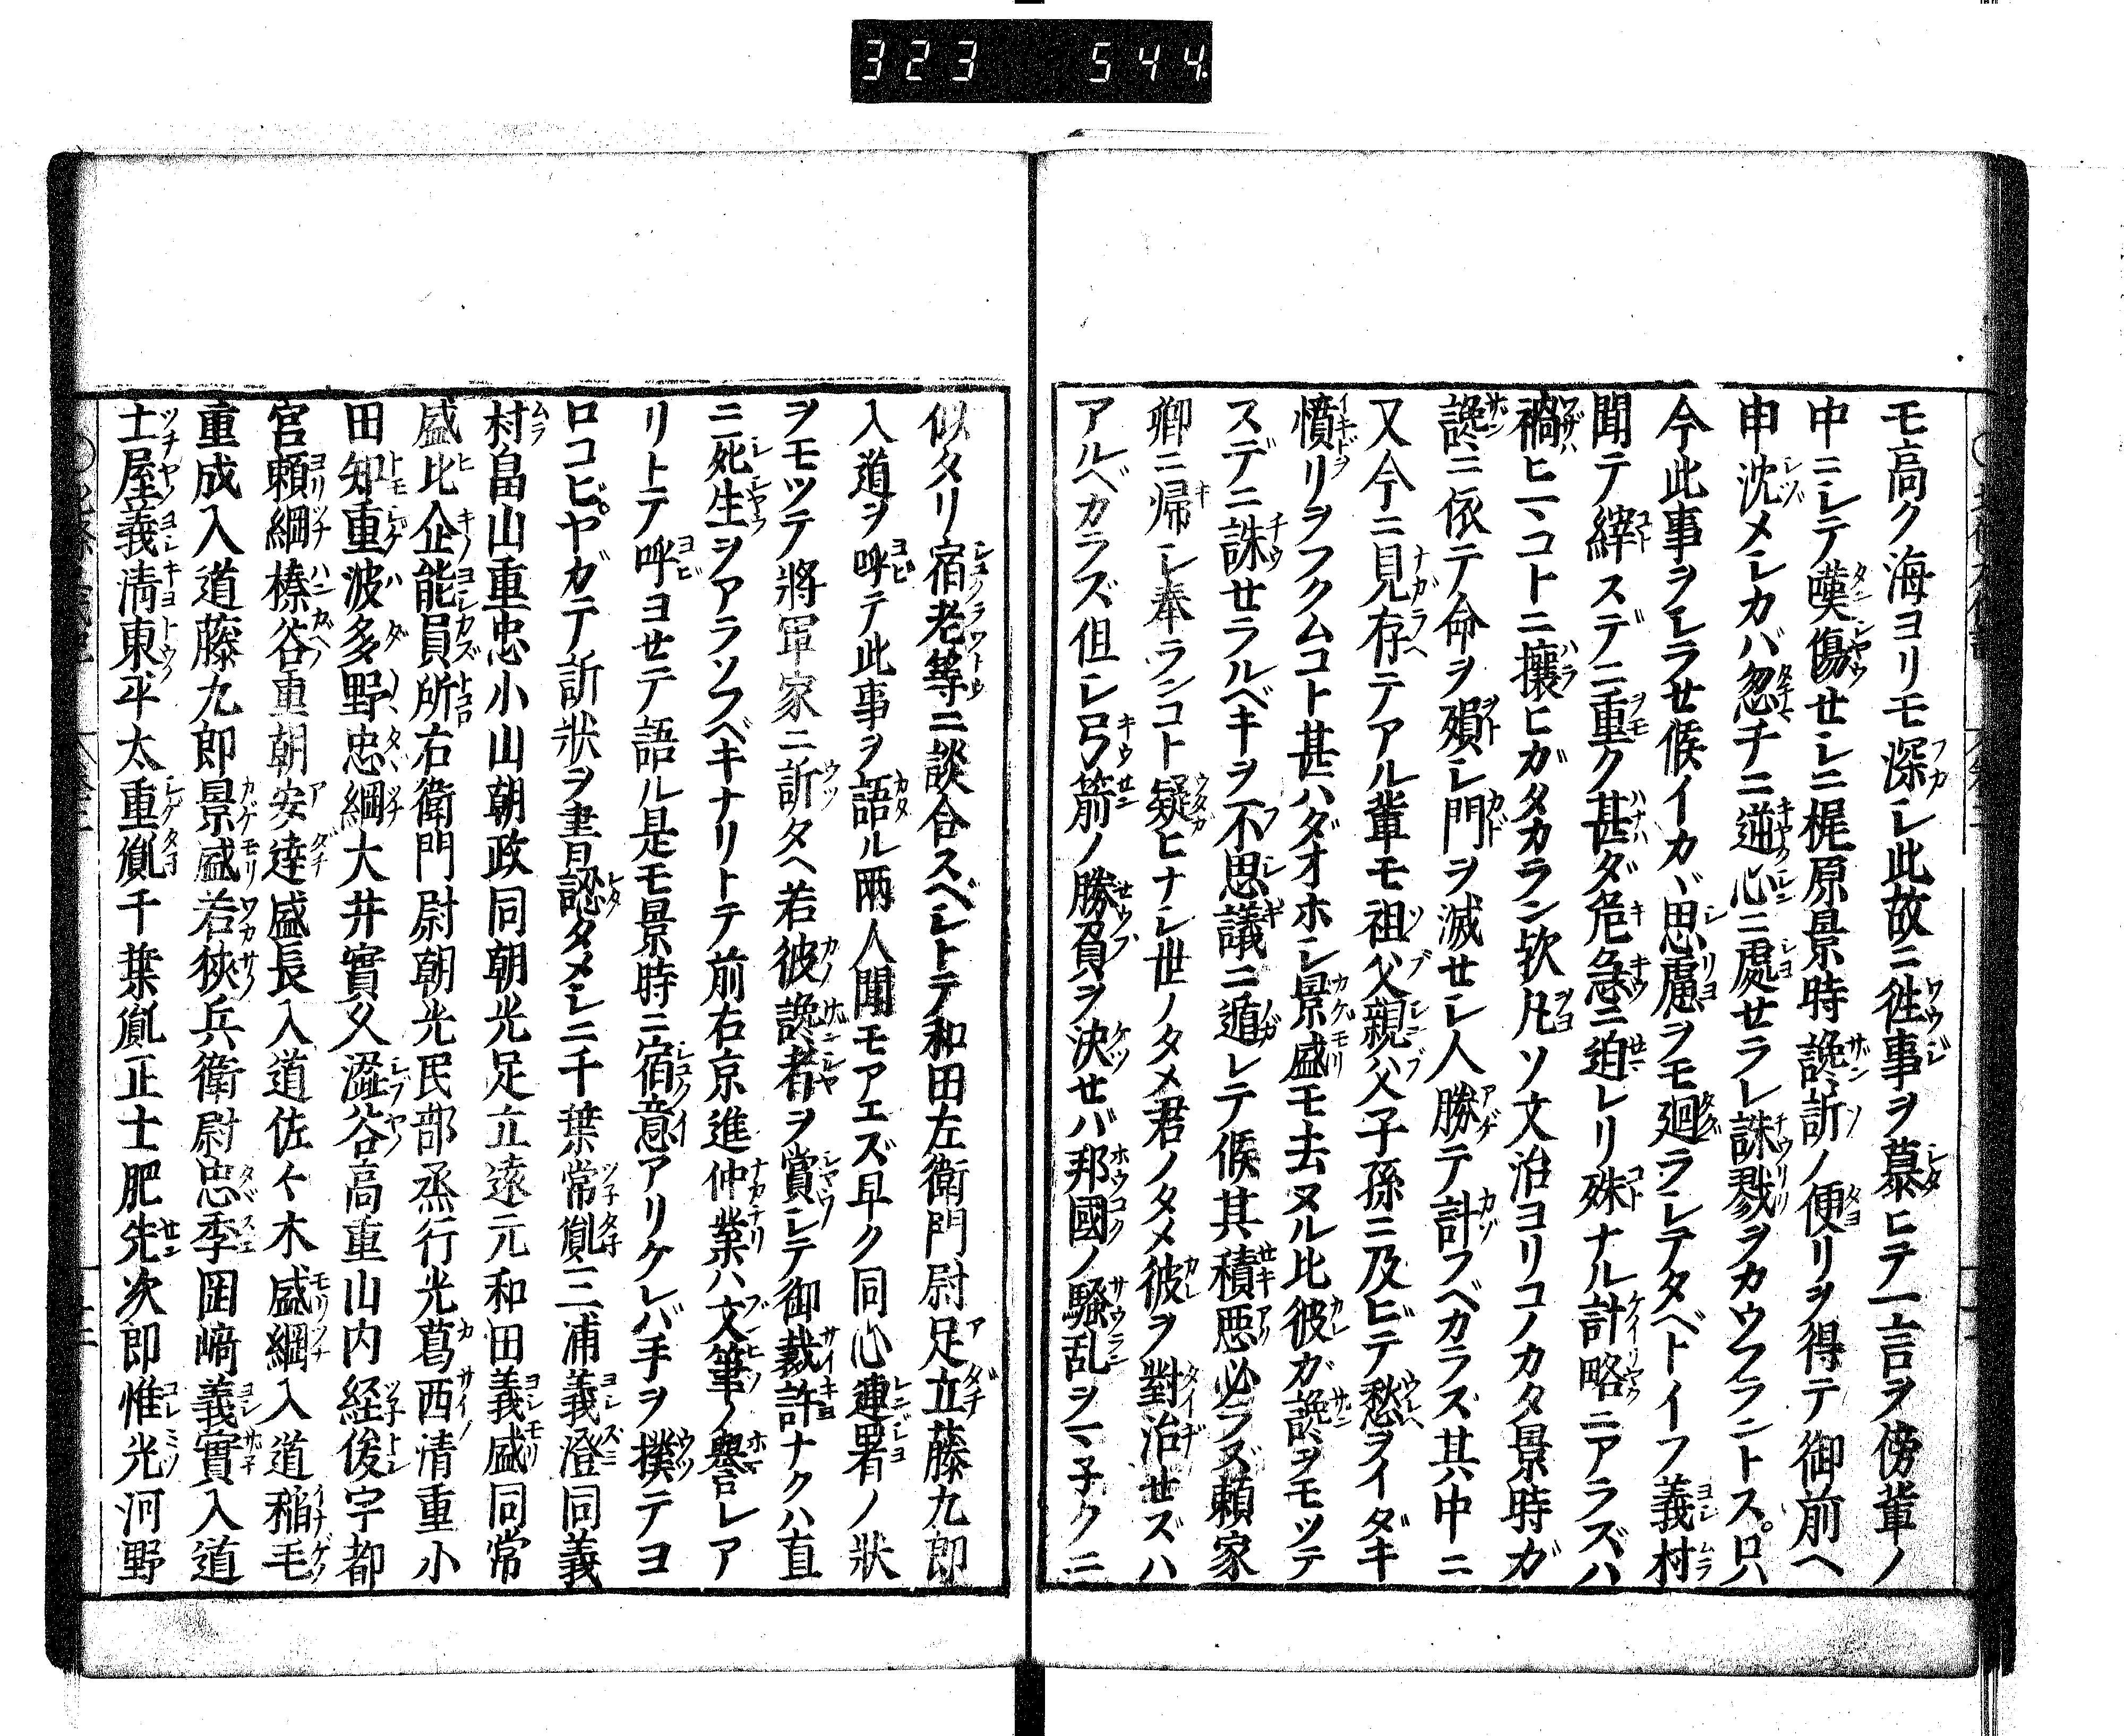 323 544.
モ高ク海ヨリモ深シ此故ニ徃事ヲ慕ヒテ一言ヲ傍輩ノ
中ニシテ嘆傷せシニ梶原景時讒訴ノ便リヲ得テ御前ヘ
申沈メシカバ忽チニ逆心ニ處せラレ誅戮ヲカウフラントス。只
今此事ヲシラせ候イカヾ思慮ヲモ廻ラシテタベトイフ義村
聞テ縡スデニ重ク甚ダ危急ニ迫レリ殊ナル計略ニアラズハ
禍ヒマコトニ攘ヒガタカラン欤凡ソ文治ヨリコノカタ景時ガ
讒ニ依テ命ヲ殞シ門ヲ滅せシ人勝テ計フベカラズ其中ニ
又今ニ見存テアル輩モ祖父親父子孫ニ及ビテ愁ヲイダキ
憤リヲフクムコト甚ハダオホシ景盛モ去ヌル比彼ガ讒ヲモツテ
スデニ誅せラルベキヲ不思議ニ遁レテ候其積悪必ラズ頼家
卿ニ帰シ奉ランコト疑ヒナシ世ノタメ君ノタメ彼ヲ對治せズハ
アルベカラズ但シ弓箭ノ勝負ヲ決せバ邦國ノ騒乱ヲマ子クニ
似タリ宿老等ニ談合スベシトテ和田左衛門尉足立藤九郎
入道ヲ呼テ此事ヲ語ル兩人聞モアエズ早ク同心連署ノ狀
ヲモツテ將軍家ニ訴タヘ若彼讒者ヲ賞シテ御裁許ナクハ直
ニ死生ヲアラソフベキナリトテ前右京進仲業ハ文筆ノ譽レア
リトテ呼ヨせテ語ル是モ景時ニ宿意アリケレバ手ヲ撲テヨ
ロコビ。ヤガテ訴狀ヲ書認タメシニ千葉常胤三浦義澄同義
村畠山重忠小山朝政同朝光足立遠元和田義盛同常
盛比企能員所右衛門尉朝光民部烝行光葛西清重小
田知重波多野忠綱大井實久澁谷高重山内経俊宇都
宮頼綱榛谷重朝安達盛長入道佐々木盛綱入道稲毛
重成入道藤九郎景盛若狹兵衛尉忠季罡﨑義實入道
士屋義淸東平太重胤千葉胤正士肥先次郎惟光河野